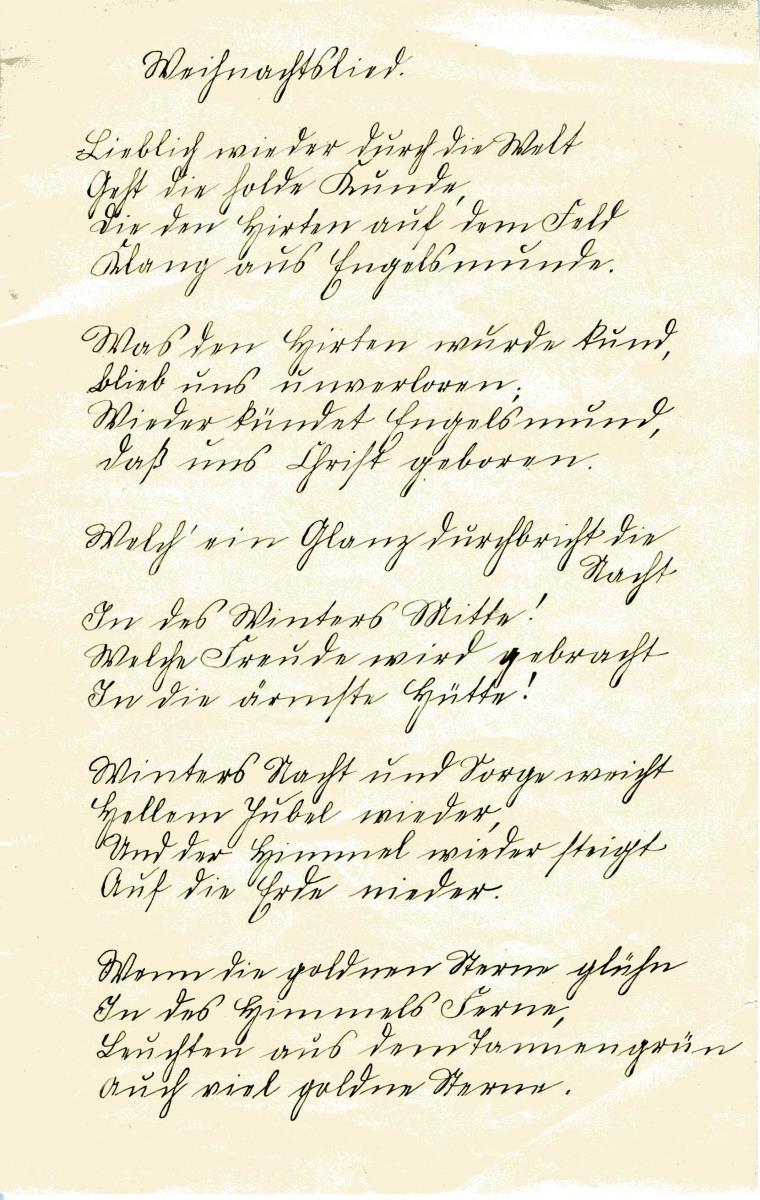 Weihnachtslied.
Lieblich wieder durch die Welt
Geht die holde Kunde,
Die den Hirten auf dem Feld
Klang aus Engelsmunde.
Was den Hirten wurde kund,
Blieb uns unverloren;
Wieder kündet Engelsmund,
Daß uns Christ geboren.
Welch' ein Glanz durchbricht die
Nacht
In des Winters Mitte!
Welche Freude wird gebracht
In die ärmste Hütte!
Winters Nacht und Sorge weicht
Hellem Jubel wieder,
Und der Himmel wieder steigt
Auf die Erde nieder.
Wenn die goldnen Sterne glühn
In des Himmels Ferne,
Leuchten aus dem Tannengrün
Auch viel goldne Sterne.